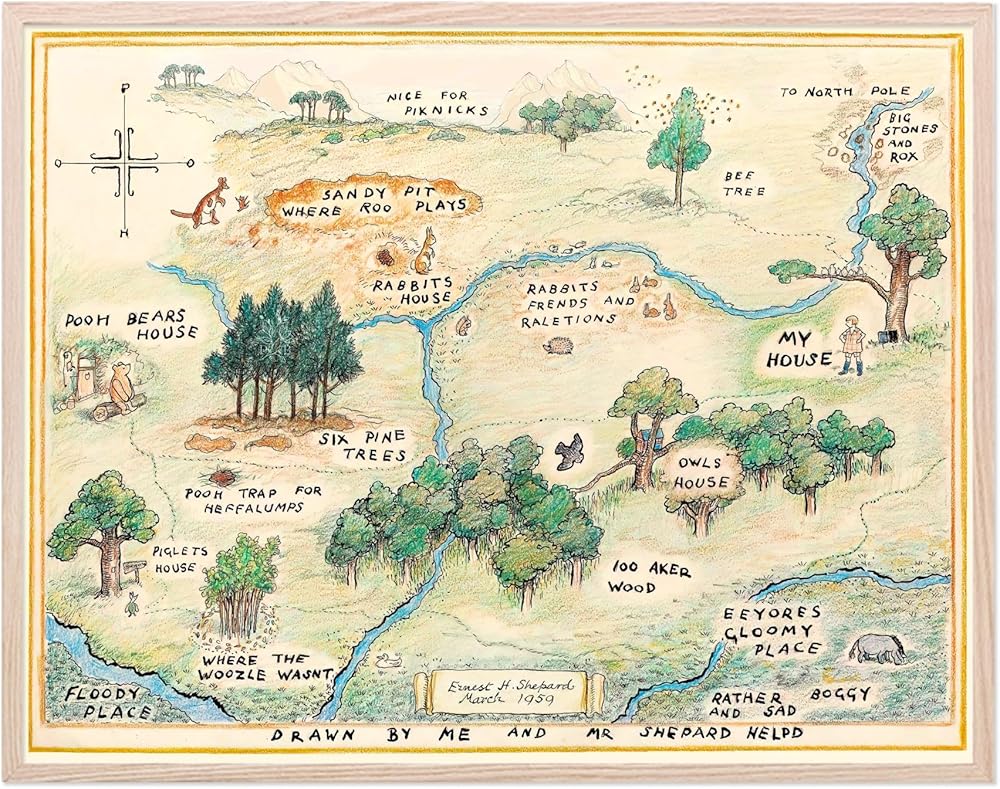 NICE FOR
PIKNICKS
TO NORTH POLE
BIG
STONES
AND
ROX
P
O
O
H
BEE
TREE
SANDY PIT
WHERE ROO PLAYS
RABBITS
HOUSE
RABBITS
FRENDS AND
RALETIONS
POOH BEARS
HOUSE
MY
HOUSE
SIX PINE
TREES
OWLS
HOUSE
POOH TRAP FOR
HEFFALUMPS
PIGLETS
HOUSE
100 AKER
WOOD
EEYORES
GLOOMY
PLACE
WHERE THE
WOOZLE WASNT
FLOODY
PLACE
Ernest H. Shepard
March 1959
RATHER BOGGY
AND SAD
DRAWN BY ME AND MR SHEPARD HELPD